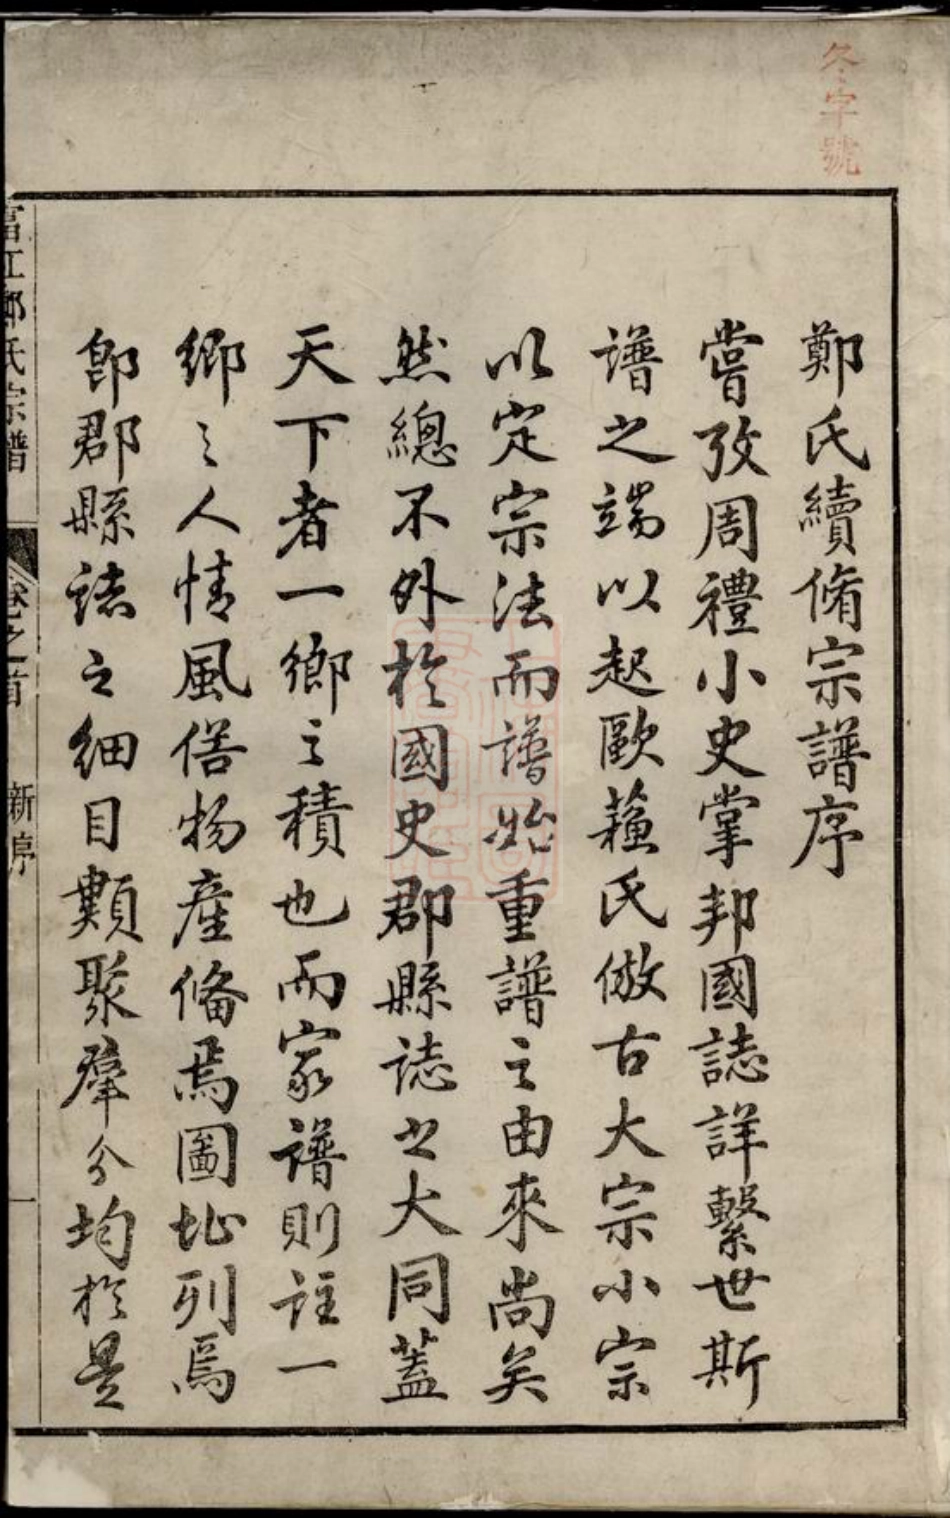 冬字號
鄭氏續脩宗譜序
嘗攷周禮小史掌邦國誌詳繫世斯
譜之端以起歐蘓氏倣古大宗小宗
以定宗法而譜始重譜之由來尚矣
然總不外於國史郡縣誌之大同蓋
天下者一鄉之積也而家譜則註一
鄉之人情風俗物產俻焉圖址列焉
即郡縣誌之細目類聚羣分均於是
富江鄭氏宗譜
卷之首
新序
一